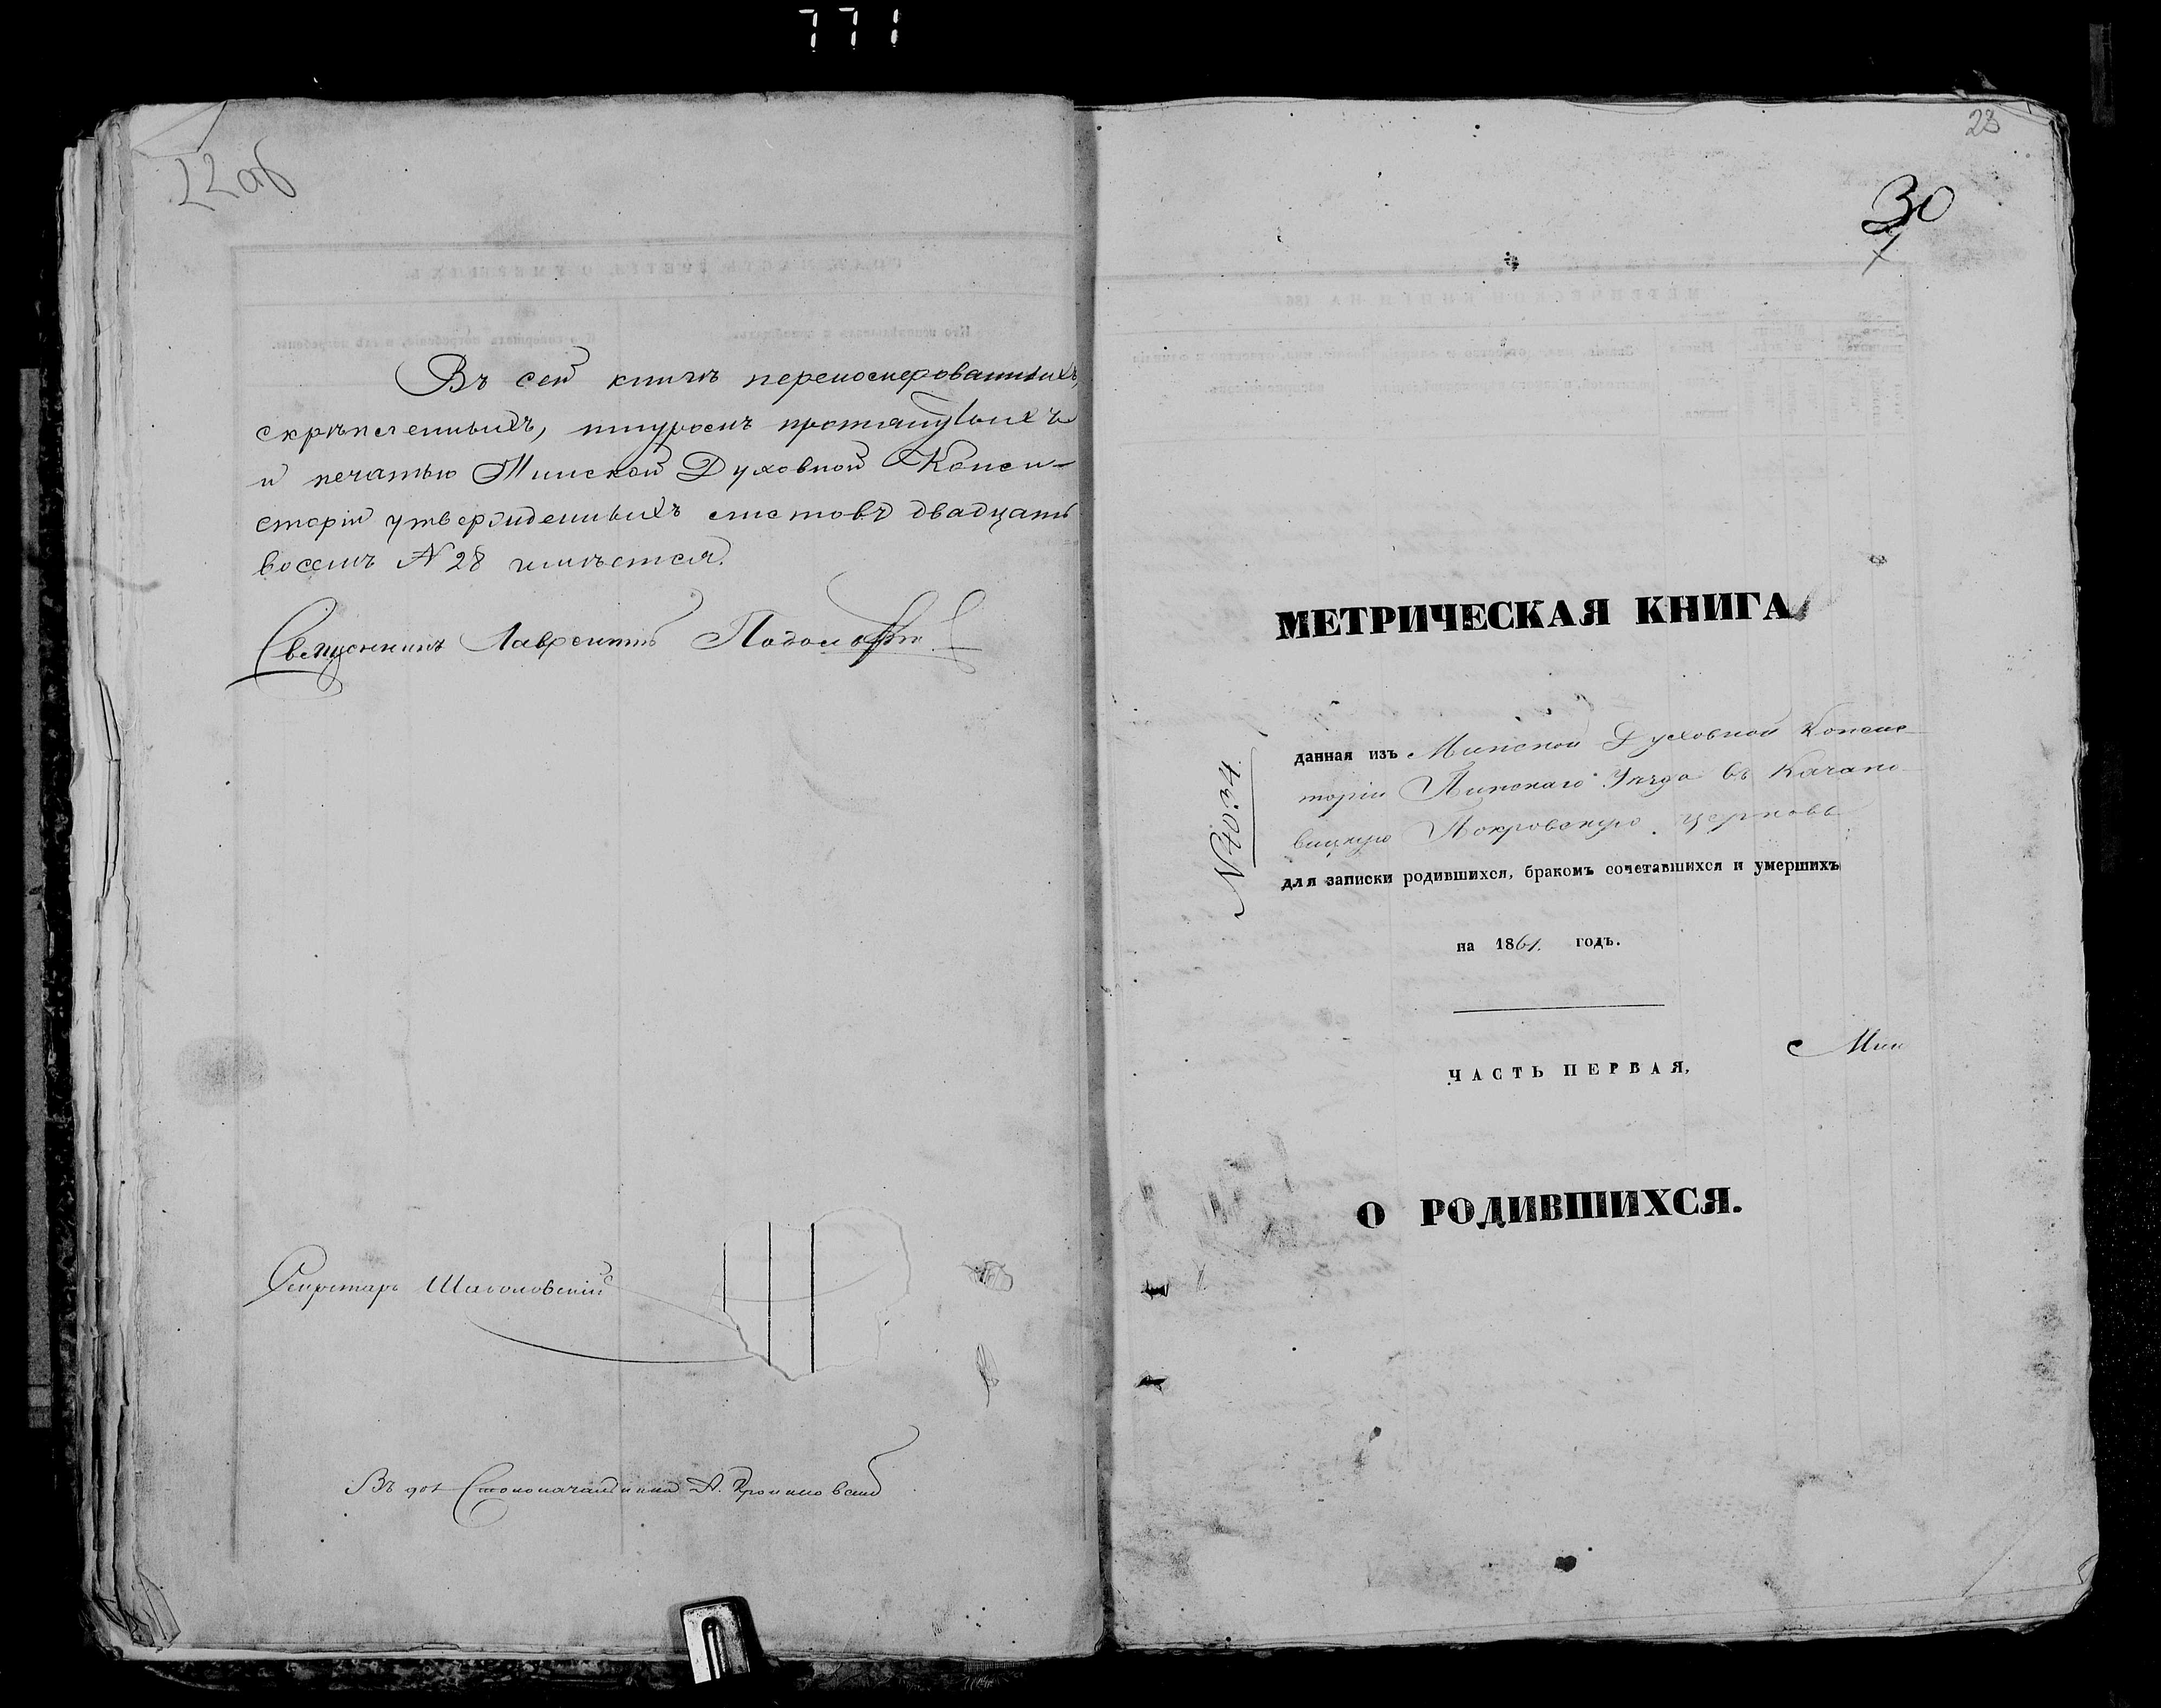 771
22об
Въ сей книгѣ переномерованныхъ,
скрѣпленныхъ, шнуромъ протянутыхъ
и печатью Минской Духовной Конси-
сторіи утвержденныхъ листовъ двадцать
восемь № 28 имѣется.
Священникъ Лаврентій
Секретарь
Въ дол Столоначальника А.
23
30
МЕТРИЧЕСКАЯ КНИГА
№ 4034.
данная изъ Минской Духовной Консис-
торіи Пинскаго Уѣзда въ Качано-
вицкую Покровскую церковь
для записки родившихся, бракомъ сочетавшихся и умершихъ
на 1861. годъ.
ЧАСТЬ ПЕРВАЯ,
Мин
О РОДИВШИХСЯ.